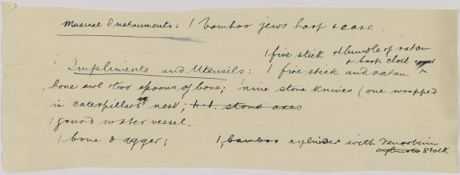 Musical Instruments: 1 bamboo jews harp & case.
1 fire stick & bundle of ratan
& bark cloth
Impliments and Utensils: 1 fire stick and ratan
bone awl & two spoons of bone; nine stone knives (one wrapped
in caterpillars nest; stone axes
1 gourd water vessel.
1 bone dagger; 1 bamboo cylinder with
stalk